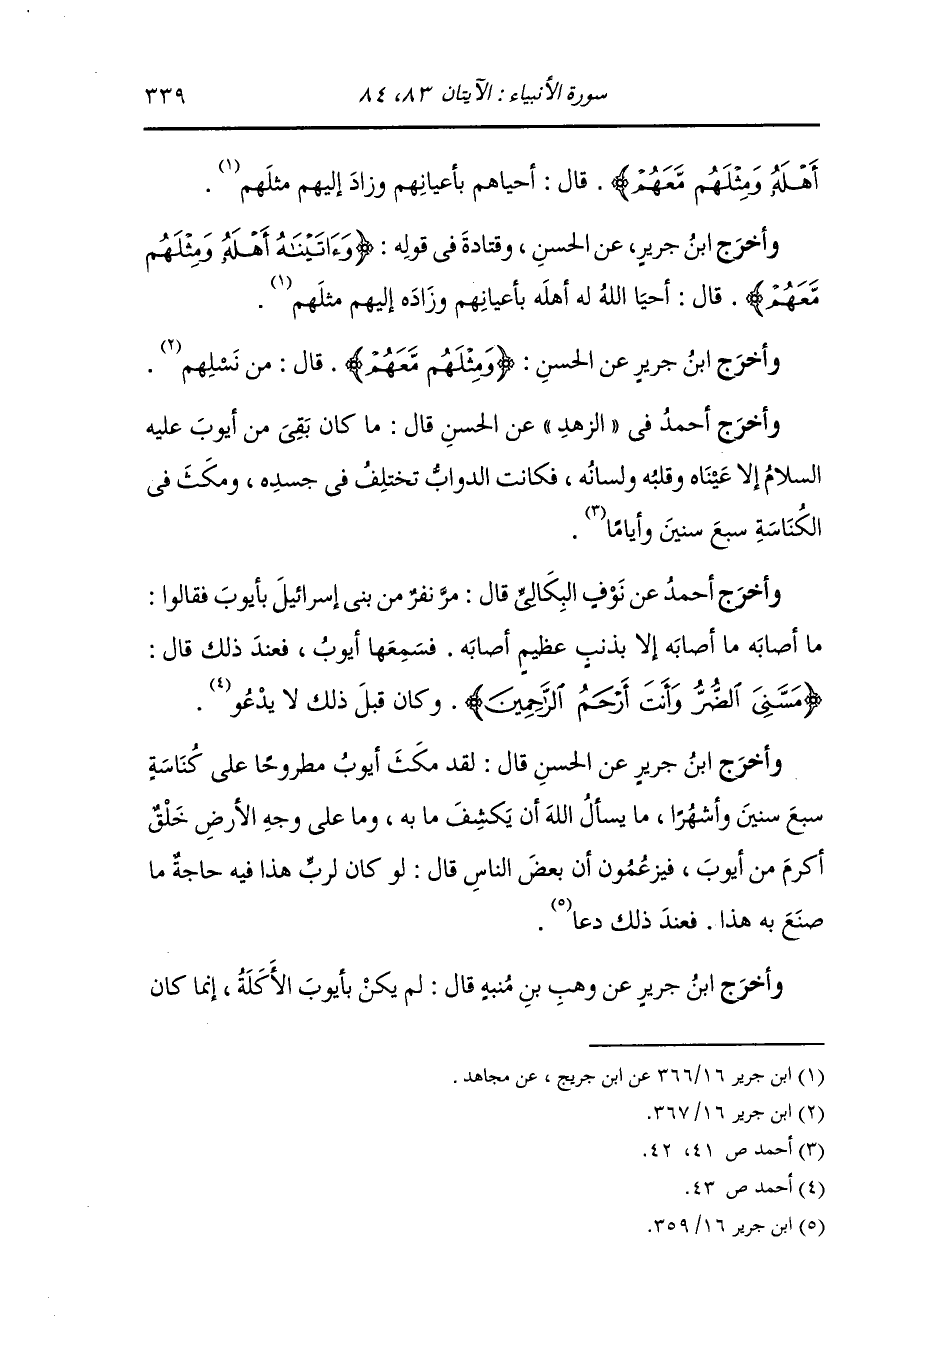 سورة الأنبياء : الآيتان ٨٣، ٨٤ ٣٣٩
أَهْلَهُۥ وَمِثْلَهُم مَّعَهُمْ﴾ . قال : أحياهم بأعيانِهم وزادَ إليهم مثلَهم(١) .
وأخرَج ابنُ جريرٍ، عن الحسنِ ، وقتادةَ فى قولِه : ﴿وَءَاتَيْنَٰهُ أَهْلَهُۥ وَمِثْلَهُم
مَّعَهُمْ﴾ . قال : أحيَا اللهُ له أهلَه بأعيانِهم وزَادَه إليهم مثلَهم(١) .
وأخرَج ابنُ جريرٍ عن الحسنِ : ﴿وَمِثْلَهُم مَّعَهُمْ﴾ . قال : من نَسْلِهم(٢) .
وأخرَج أحمدُ فى « الزهدِ » عن الحسنِ قال : ما كان بَقِىَ من أيوبَ عليه
السلامُ إلا عَيْنَاه وقلبُه ولسانُه ، فكانت الدوابُّ تختلِفُ فى جسدِه ، ومكَثَ فى
الكُنَاسَةِ سبعَ سنينَ وأيامًا(٣) .
وأخرَج أحمدُ عن نَوْفٍ البِكَالِىِّ قال : مرَّ نفرٌ من بنى إسرائيلَ بأيوبَ فقالوا :
ما أصابَه ما أصابَه إلا بذنبٍ عظيمٍ أصابَه . فسَمِعَها أيوبُ ، فعندَ ذلك قال :
﴿مَسَّنِىَ ٱلضُّرُّ وَأَنتَ أَرْحَمُ ٱلرَّٰحِمِينَ﴾ . وكان قبلَ ذلك لا يدْعُو(٤) .
وأخرَج ابنُ جريرٍ عن الحسنِ قال : لقد مكَثَ أيوبُ مطروحًا على كُنَاسَةٍ
سبعَ سنينَ وأشهُرًا ، ما يسألُ اللهَ أن يَكشِفَ ما به ، وما على وجهِ الأرضِ خَلْقٌ
أكرمَ من أيوبَ ، فيزعُمُون أن بعضَ الناسِ قال : لو كان لربِّ هذا فيه حاجةٌ ما
صنَعَ به هذا . فعندَ ذلك دعا(٥) .
وأخرَج ابنُ جريرٍ عن وهبِ بنِ مُنبهٍ قال : لم يكنْ بأيوبَ الأَكَلَةُ ، إنما كان
(١) ابن جرير ٣٦٦/١٦ عن ابن جريج ، عن مجاهد .
(٢) ابن جرير ٣٦٧/١٦.
(٣) أحمد ص ٤١، ٤٢.
(٤) أحمد ص ٤٣.
(٥) ابن جرير ٣٥٩/١٦.